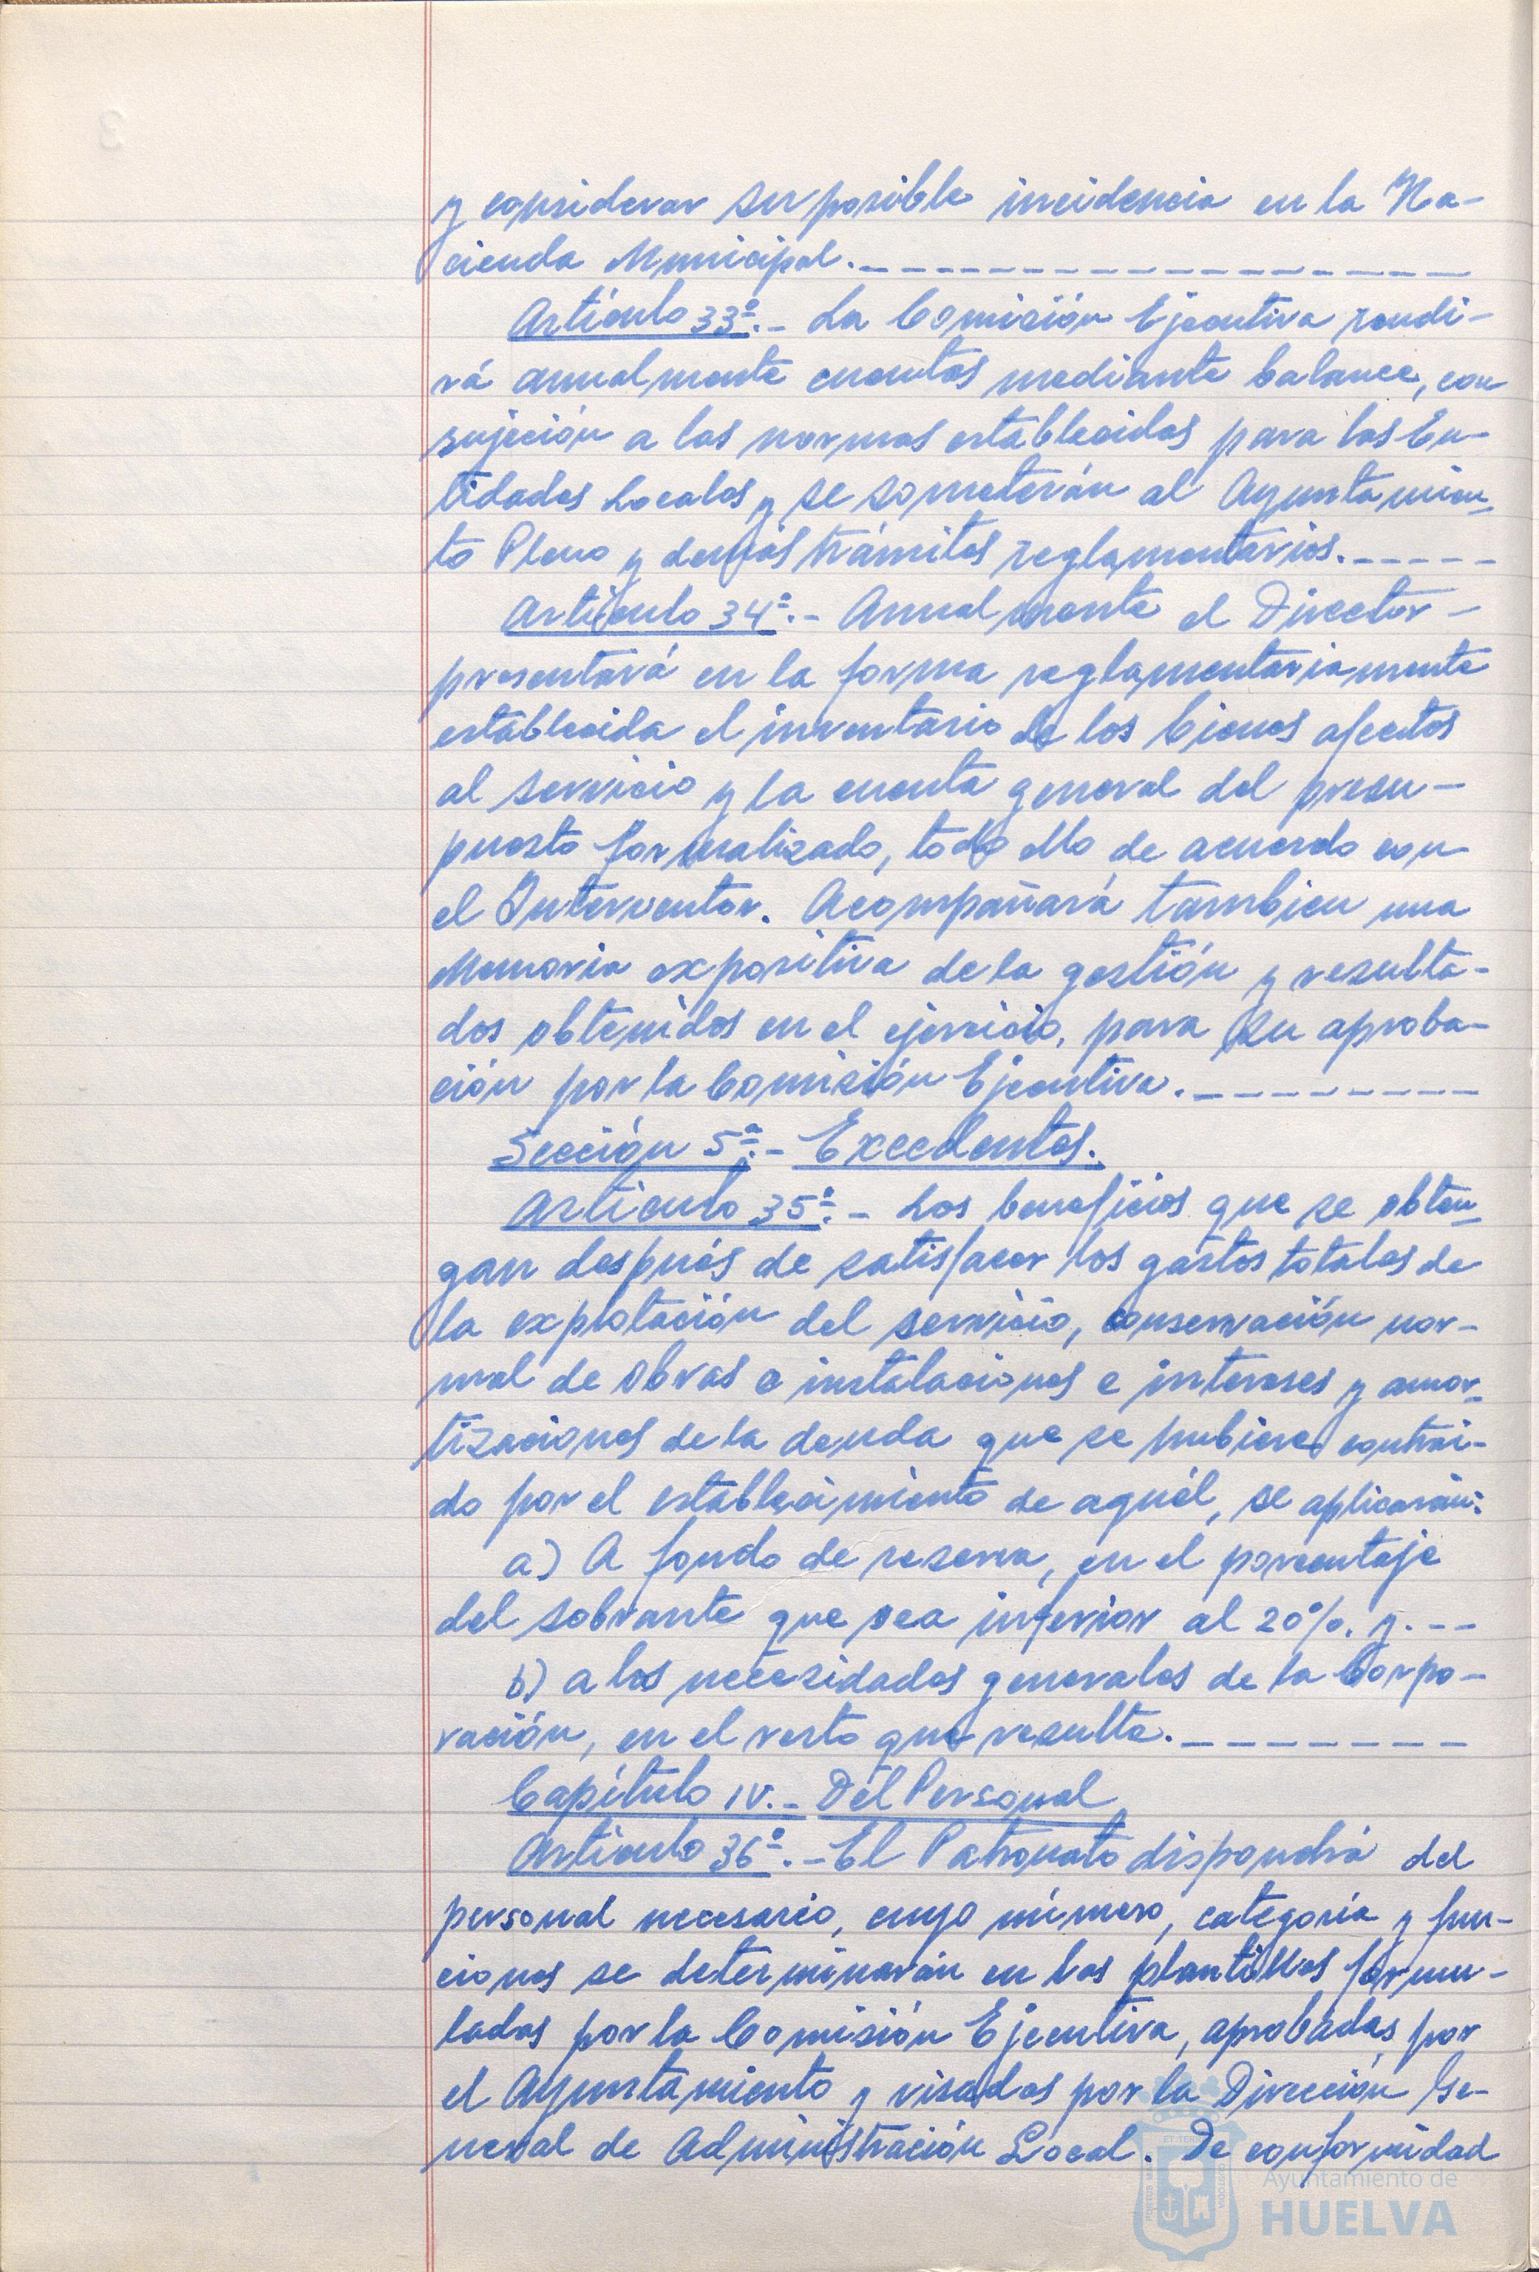 y considerar su posible incidencia en la Ha-
cienda Municipal.-
Artículo 33º.- La Comisión Ejecutiva rendi-
rá anualmente cuentas mediante balance, con
sujeción a las normas establecidas para las En-
tidades Locales y se someterán al Ayuntamien-
to Pleno y demás trámites reglamentarios.-
Artículo 34º.- Anualmente el Director -
presentará en la forma reglamentariamente
establecida el inventario de los bienes afectos
al servicio y la cuenta general del presu-
puesto formalizado, todo ello de acuerdo con
el Interventor. Acompañará tambien una
Memoria expositiva de la gestión y resulta-
dos obtenidos en el ejercicio, para su aproba-
ción por la Comisión Ejecutiva.-
Sección 5ª.- Excedentes.
Artículo 35º.- Los beneficios que se obten-
gan después de satisfacer los gastos totales de
la explotación del servicio, conservación nor-
mal de obras e instalaciones e intereses y amor-
tizaciones de la deuda que se hubiere contrai-
do por el establecimiento de aquél, se aplicarán:
a) A fondo de reserva, en el porcentaje
del sobrante que sea inferior al 20%. y.---
b) a las necesidades generales de la Corpo-
ración, en el resto que resulte.-
Capítulo IV.- Del Personal
Artículo 36º.- El Patronato dispondrá del
personal necesario, cuyo número, categoría y fun-
ciones se determinarán en las plantillas formu-
ladas por la Comisión Ejecutiva, aprobadas por
el Ayuntamiento y visadas por la Dirección Ge-
neral de Administración Local. De conformidad
Ayuntamiento de
HUELVA